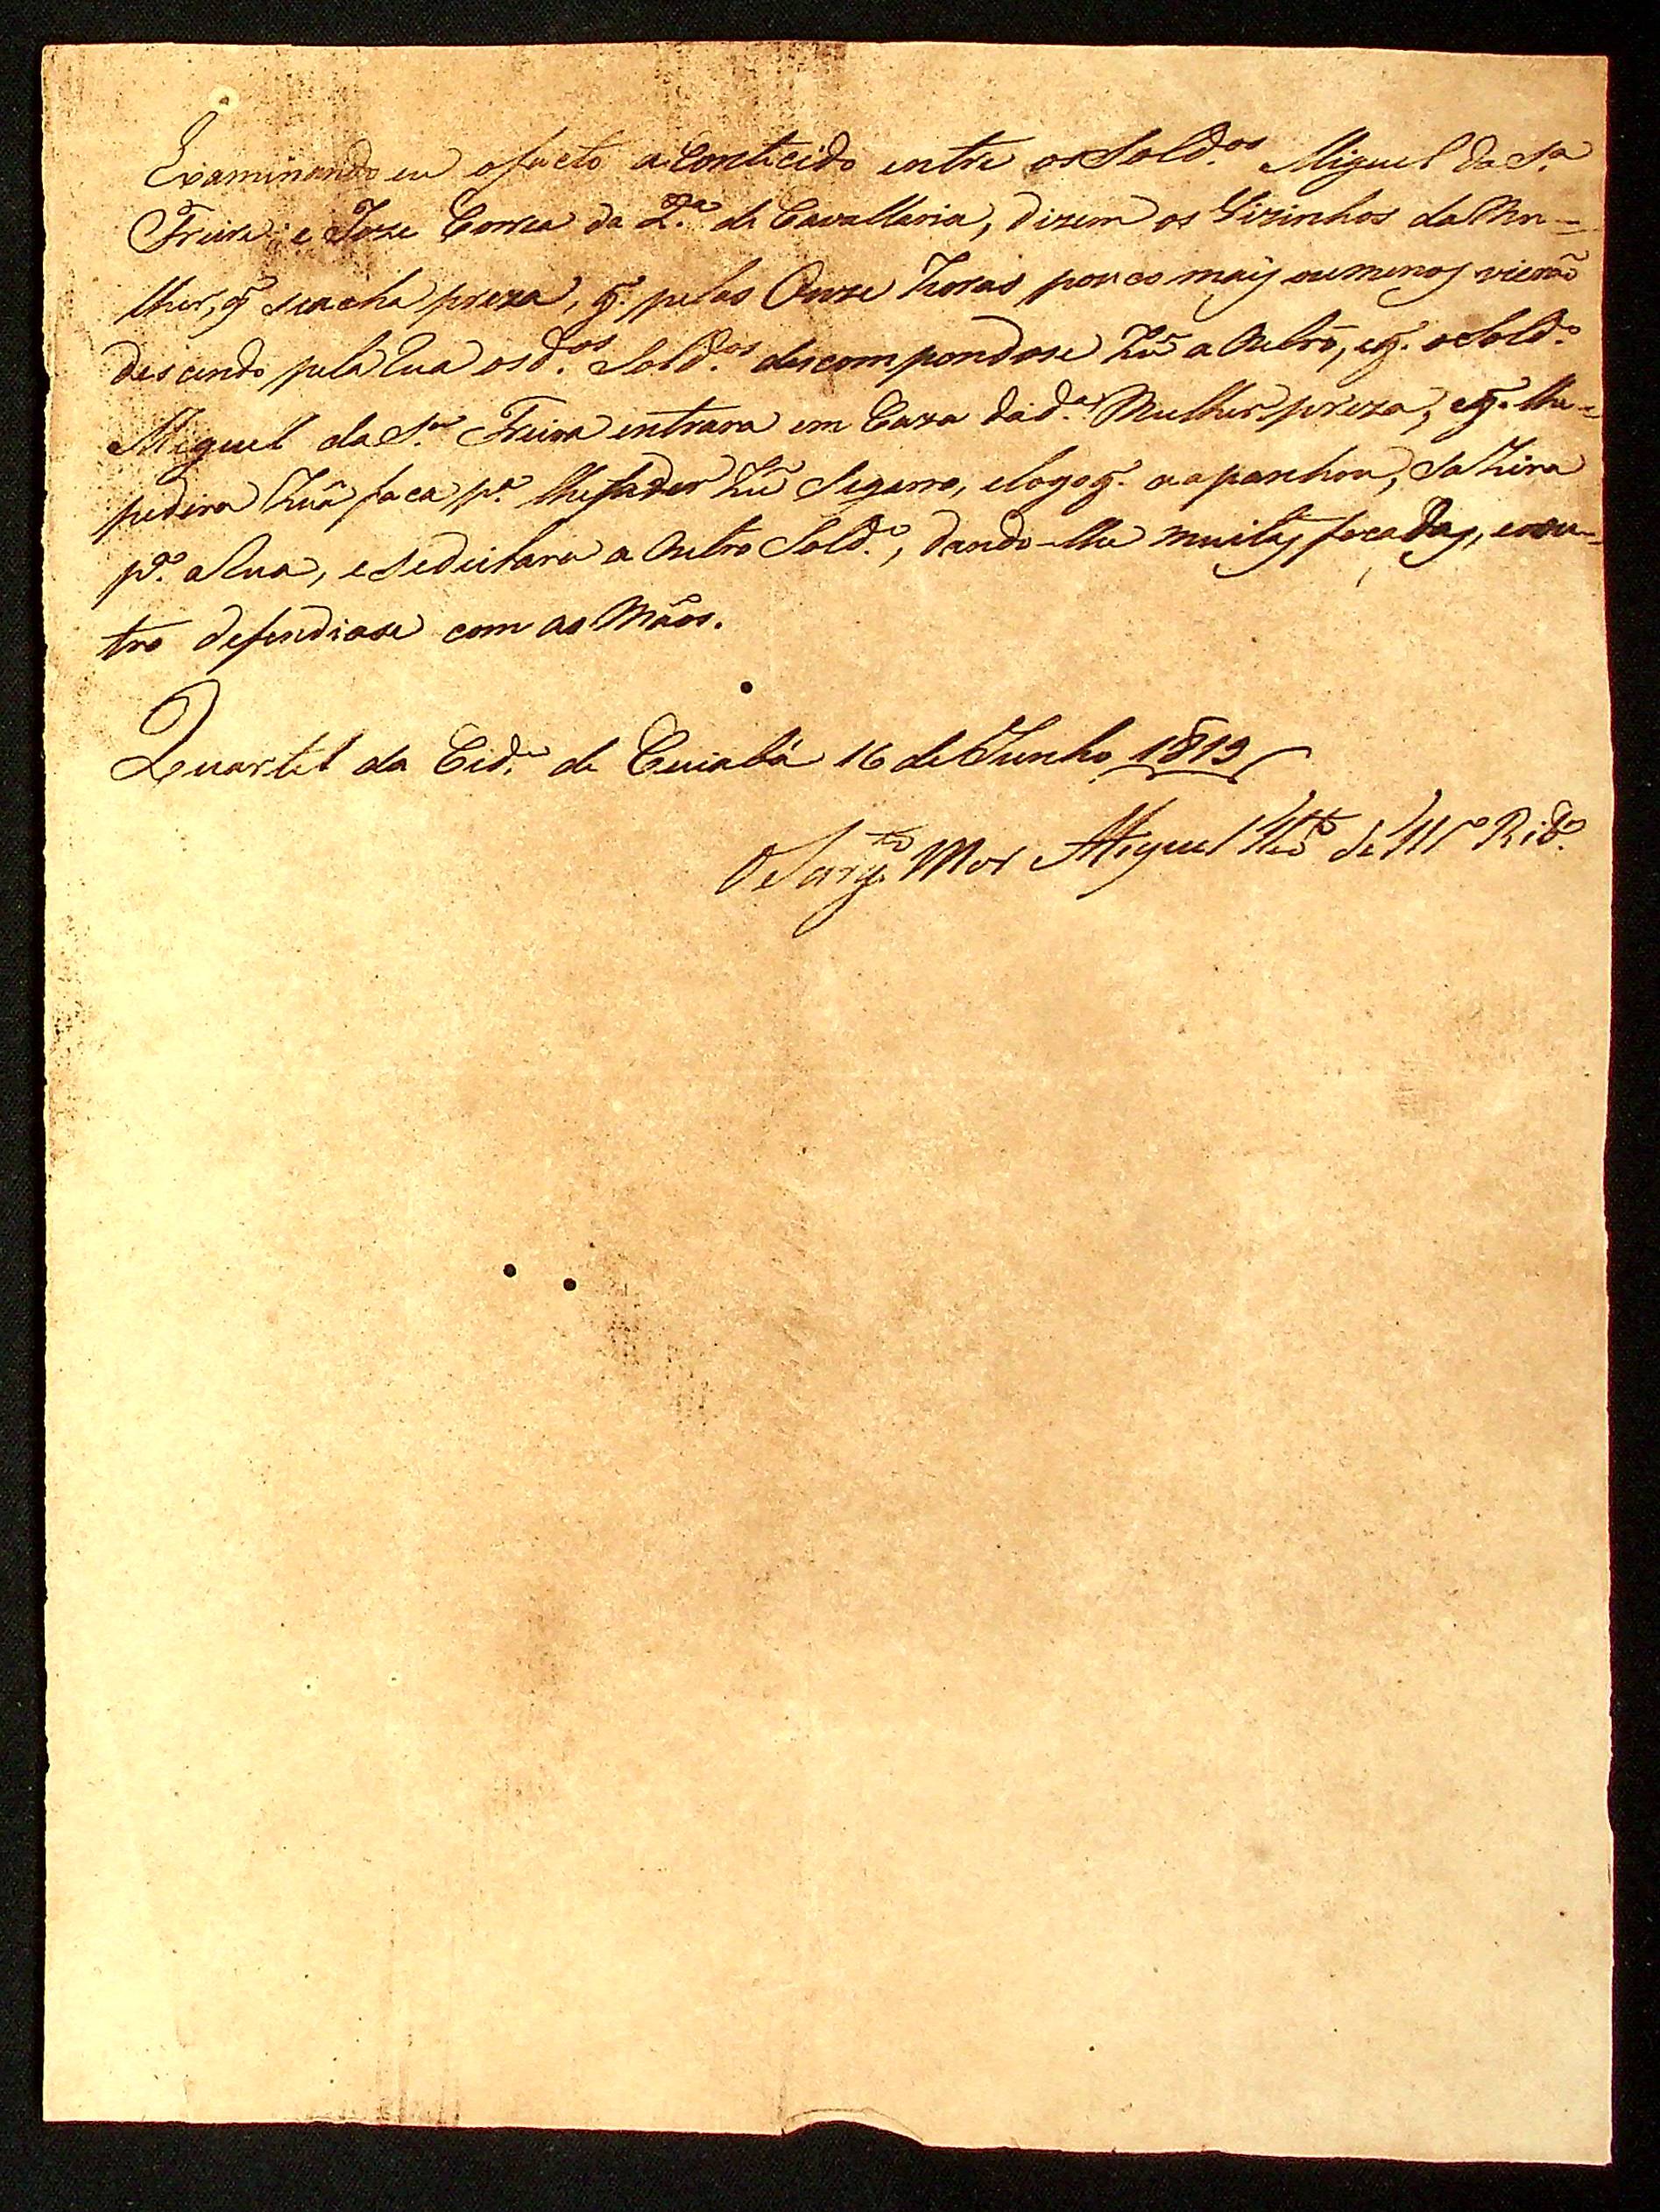 Examinando eu ofacto acontecido entre os Sold.os Miguel da S.a
Freira e Joze Correa da 2.a de Cavallaria, dizem os Vizinhos da Mu-
lher, q̃ seacha preza, q̃. pelas Onze horas pouco mais oumenos vierão
descendo pela Rua osd.os Sold.os descompondose hũ a Outro, eq̃. oSold.o
Miguel da S.a Freira entrara em Caza dad.a Mulher preza, eq̃. lhe-
pedira huã faca p.a hũ Segarro, elogoq̃. aapanhou, Sahira
p.a aRua, esedeitara a Outro Sold.o, dando-lhe muitas facadas, eoou-
tro defendiase com as Mãos.
Quartel da Cid.e de Cuiabá 16 de Junho 1819
OSarg.to Mor Miguel de Rib.o